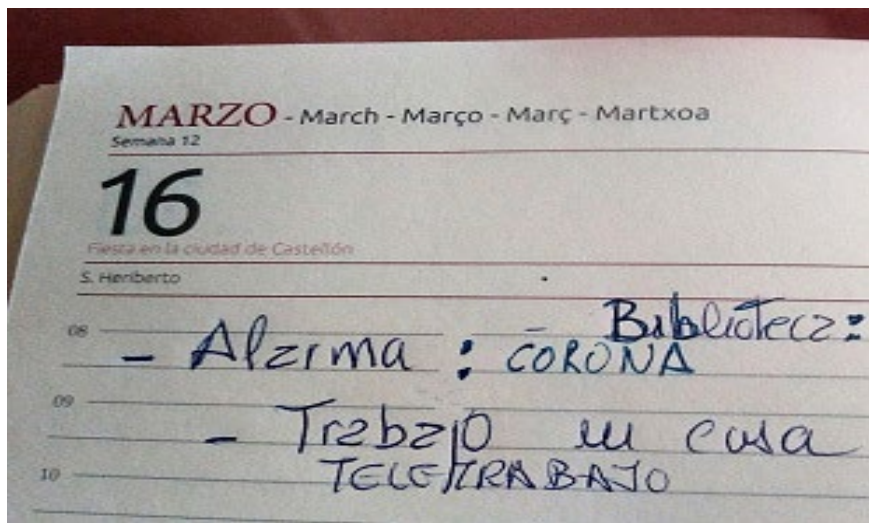 MARZO - March - Março - Març - Martxoa
Semana 12
16
Fiesta en la ciudad de Castellón
S. Heriberto
Biblioteca:
08
- Alarma : CORONA
09
- Trabajo en casa
10
TELETRABAJO